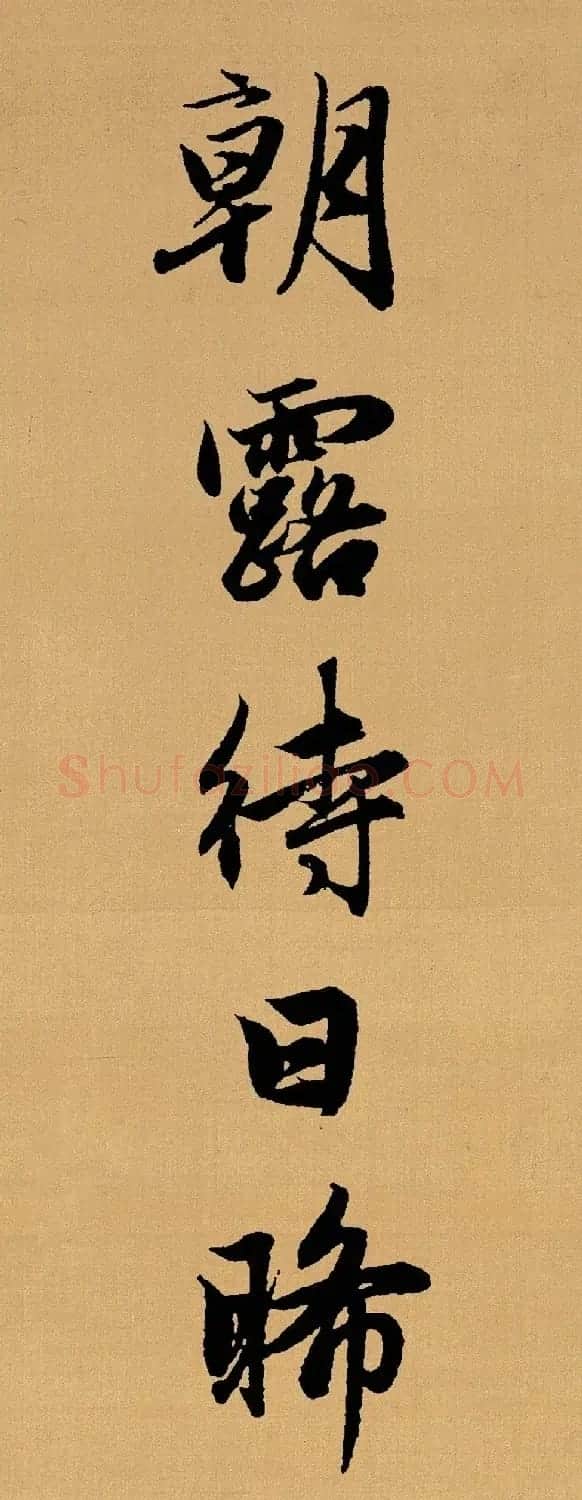 朝露待日晞
Shufaziliao.COM